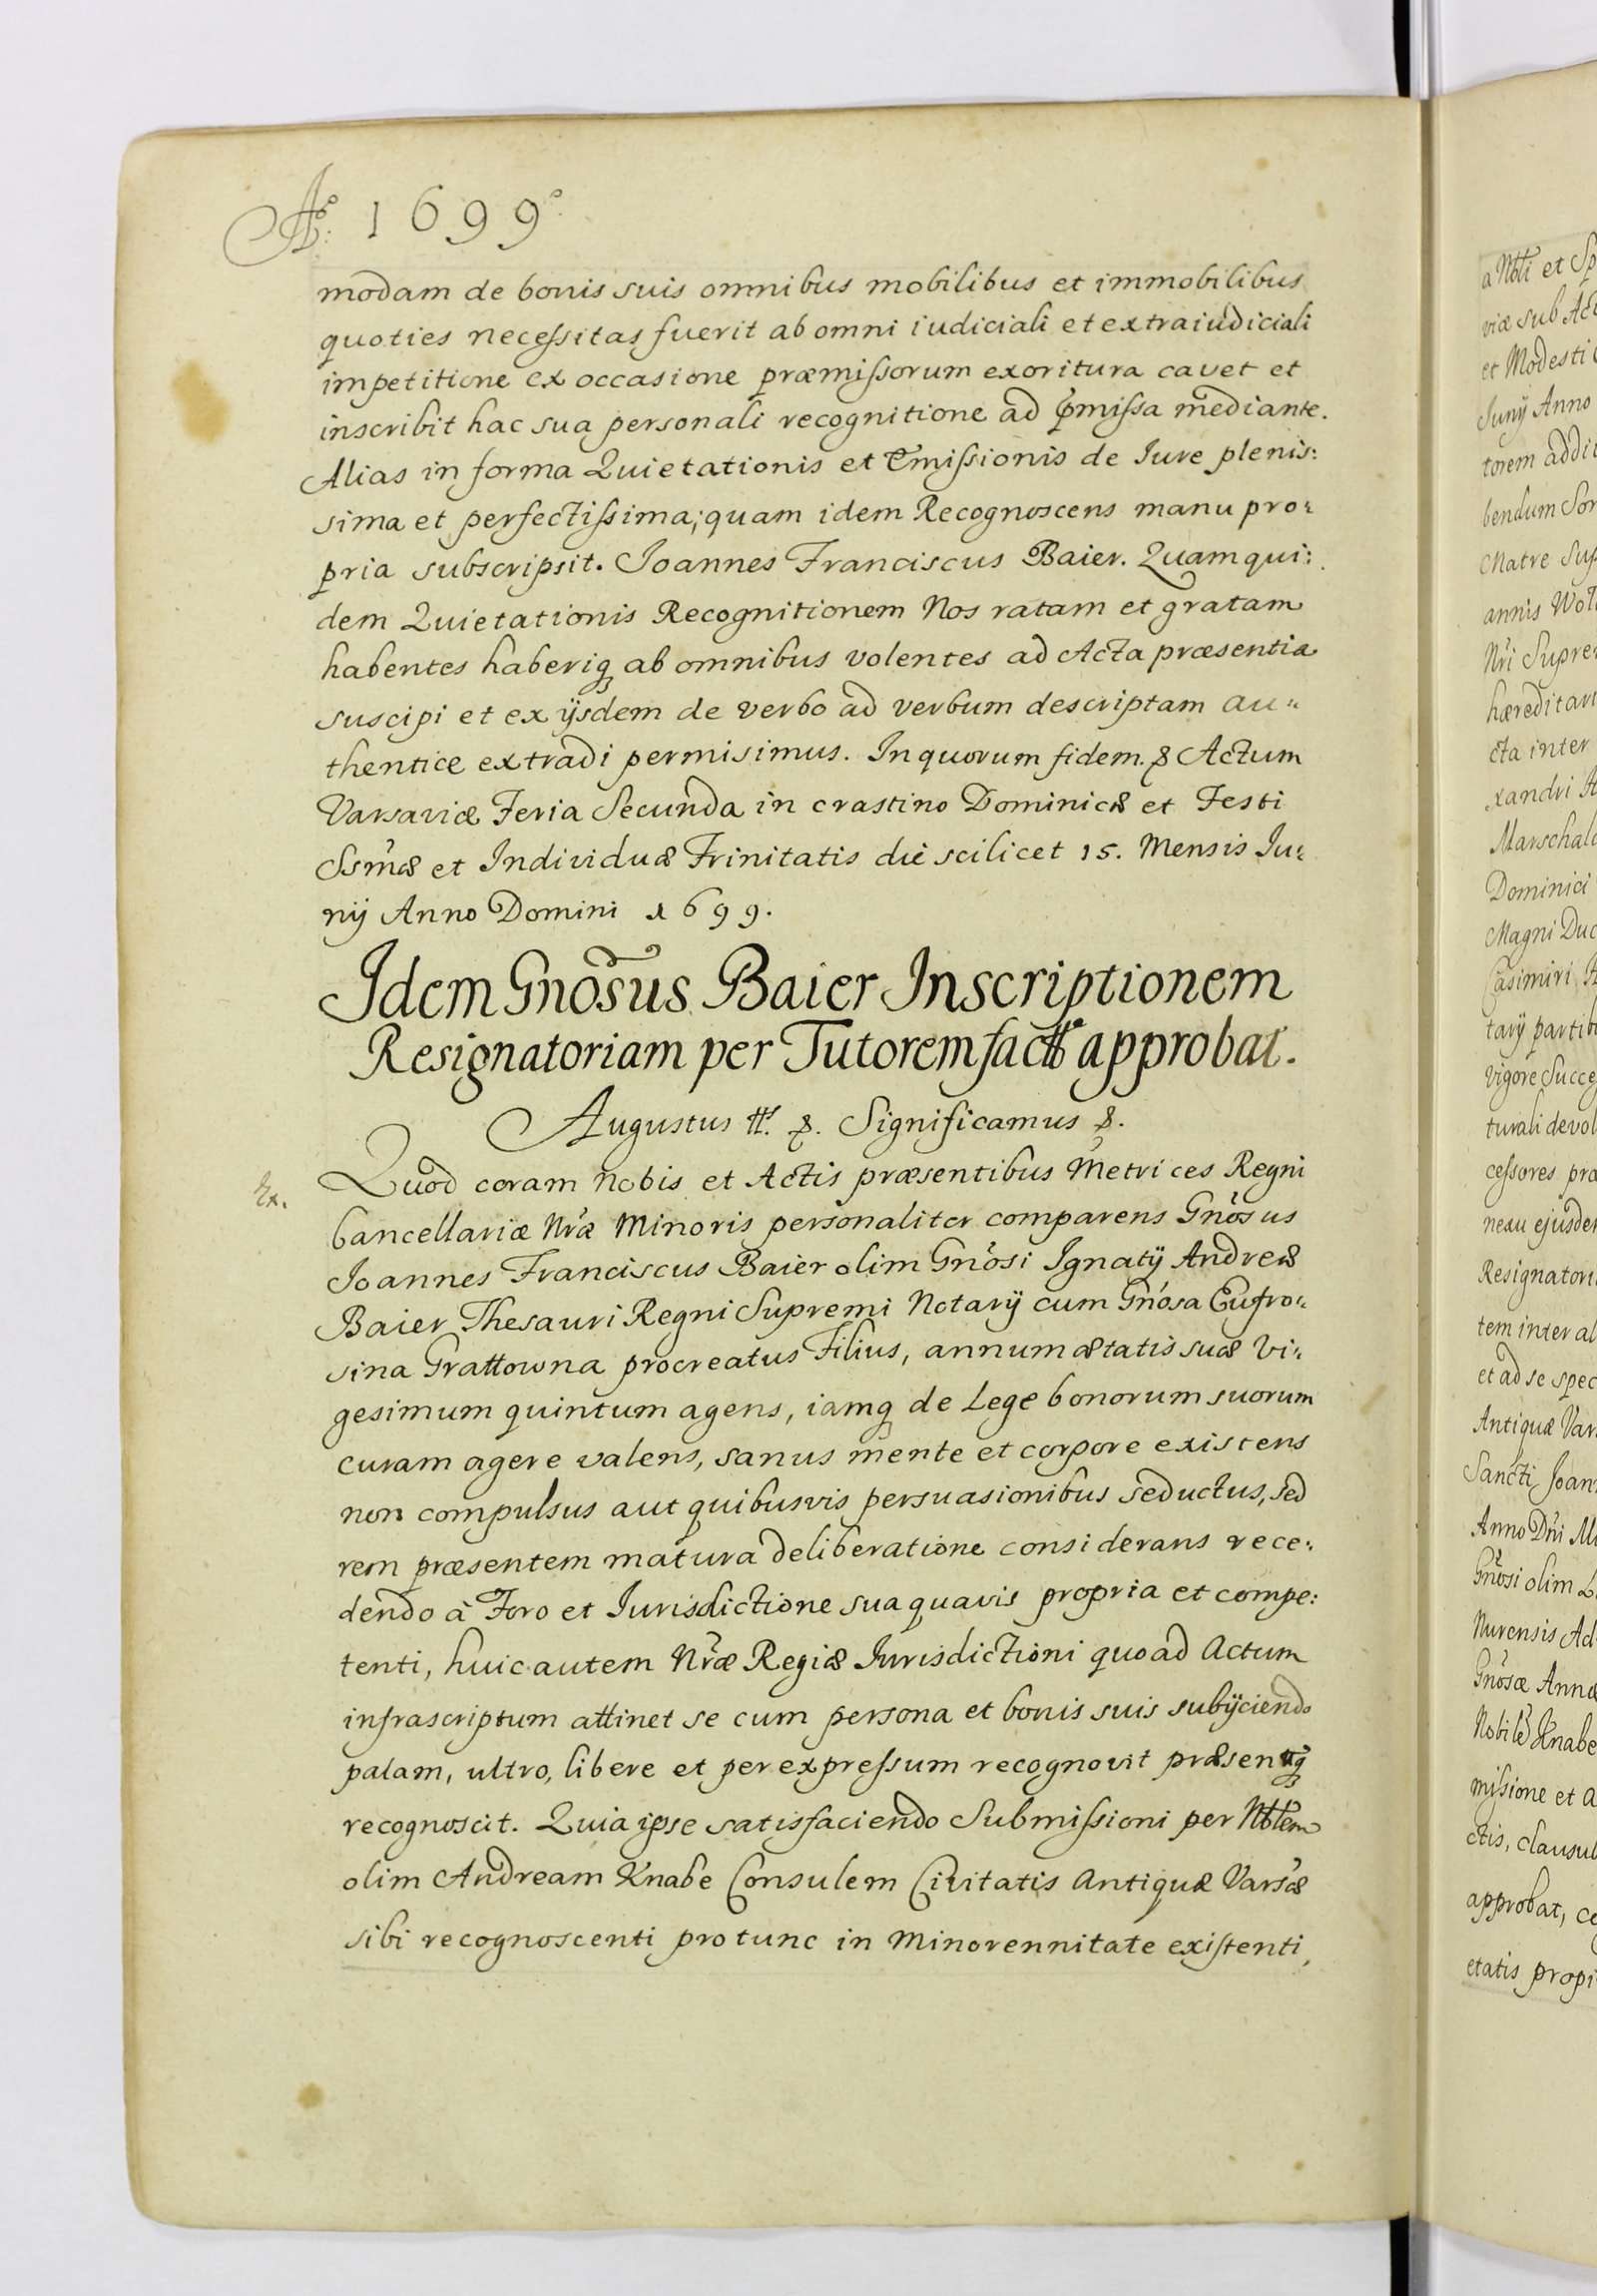 Aō: 1699°
modam de bonis suis omnibus mobilibus et immobilibus
quoties necessitas fuerit ab omni iudiciali et extraiudiciali
impetitione ex occasione præmissorum exoritura cavet et
inscribit hac sua personali recognitione ad p̃missa mediante.
Alias in forma Quietationis et Emissionis de Iure plenis:
sima et perfectissima; quam idem Recognoscens manu pro:
pria subscripsit. Joannes Franciscus Baier. Quam qui:
dem Quietationis Recognitionem Nos ratam et gratam
habentes haberiq; ab omnibus volentes ad Acta præsentia
suscipi et ex ijsdem de verbo ad verbum descriptam au:
thentice extradi permisimus. In quorum fidem. & Actum
Varsaviæ Feria Secunda in crastino Dominicæ et Festi
Ssm̃æ et Individuæ Trinitatis die scilicet 15. Mensis Iu:
nij Anno Domini 1699.
Idem Gnõsus Baier Inscriptionem
Resignatoriam per Tutorem fact̃ approbat.
Augustus II. &. Significamus &.
Ex. Quod coram nobis et Actis præsentibus Metrices Regni
Cancellariæ Nr̃æ Minoris personaliter comparens Gnõsus
Joannes Franciscus Baier olim Gnõsi Ignatij Andreæ
Baier Thesauri Regni Supremi Notarij cum Gnõsa Eufro:
sina Grattowna procreatus Filius, annum ætatis suæ Vi:
gesimum quintum agens, iamq; de Lege bonorum suorum
curam agere valens, sanus mente et corpore existens
non compulsus aut quibusvis persuasionibus seductus, sed
rem præsentem matura deliberatione considerans rece:
dendo à Foro et Iurisdictione sua quavis propria et compe:
tenti, huic autem Nr̃æ Regiæ Iurisdictioni quo ad Actum
infrascriptum attinet se cum persona et bonis suis subijciendo
palam, ultro, libere et per expressum recognovit præsentiq;
recognoscit. Quia ipse satisfaciendo Submissioni per Nblem
olim Andream Knabe Consulem Civitatis Antiquæ Varsæ
sibi recognoscenti pro tunc in Minorennitate existenti,